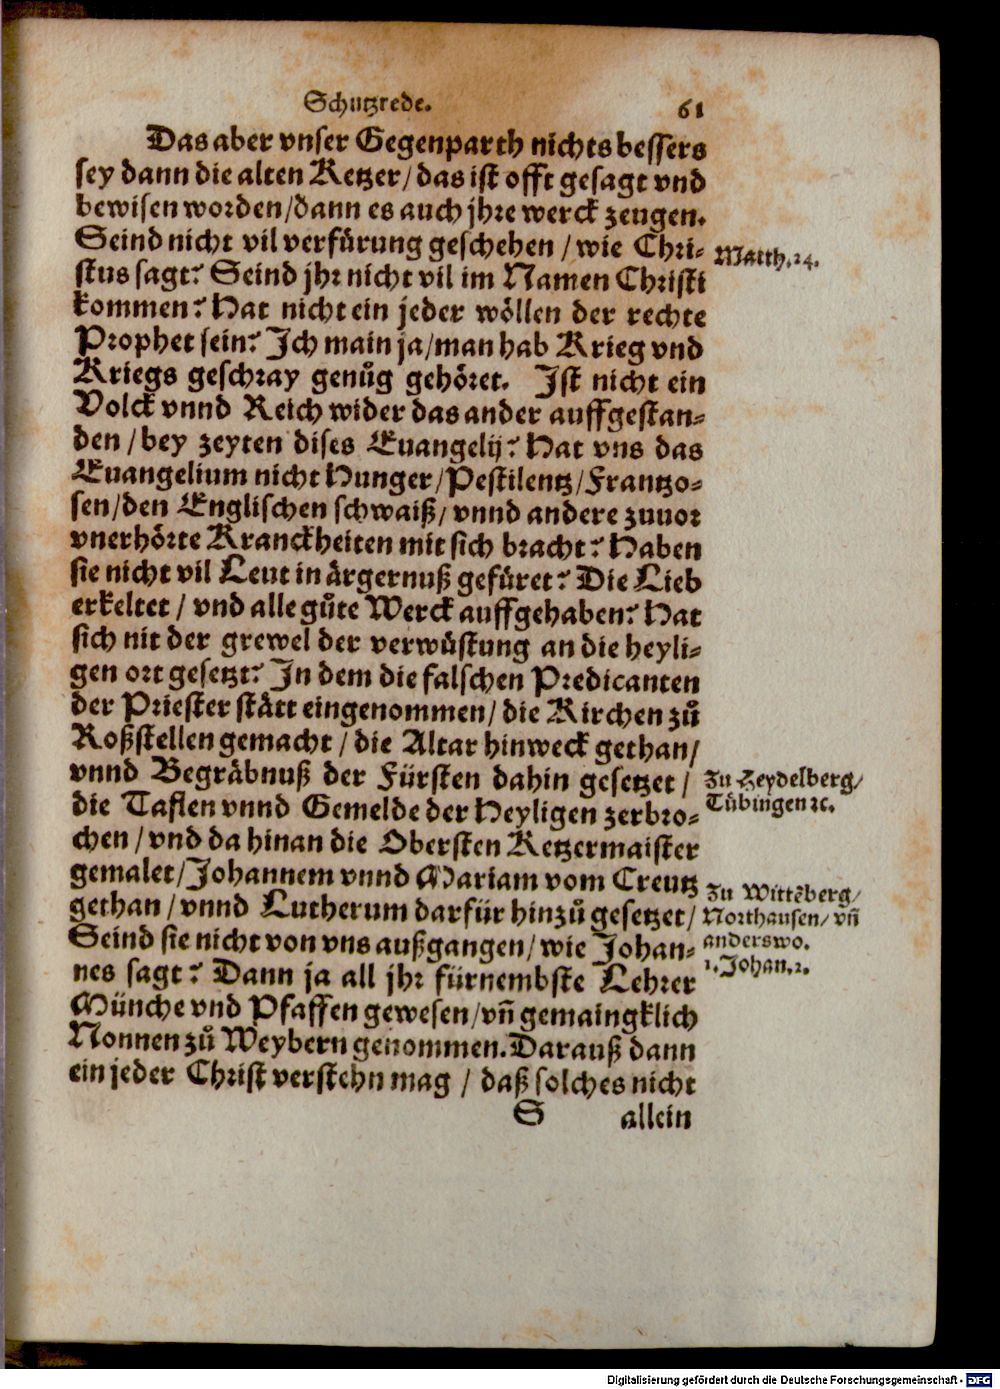 Schutzrede. 61
Das aber vnser Gegenparth nichts bessers
sey dann die alten Ketzer/das ist offt gesagt vnd
bewisen worden/dann es auch jhre werck zeugen.
Seind nicht vil verfürung geschehen/wie Chri-
stus sagt? Seind jhr nicht vil im Namen Christi
kommen? Hat nicht ein jeder wöllen der rechte
Prophet sein? Ich main ja/man hab Krieg vnd
Kriegs geschray genůg gehöret. Ist nicht ein
Volck vnnd Reich wider das ander auffgestan-
den/bey zeyten dises Euangelij? Hat vns das
Euangelium nicht Hunger/Pestilentz/Frantzo-
sen/den Englischen schwaiß/vnnd andere zuuor
vnerhörte Kranckheiten mit sich bracht? Haben
sie nicht vil Leut in ärgernuß gefüret? Die Lieb
erkeltet/vnd alle gůte Werck auffgehaben? Hat
sich nit der grewel der verwüstung an die heyli-
gen ort gesetzt? In dem die falschen Predicanten
der Priester stätt eingenommen/die Kirchen zů
Roßstellen gemacht/die Altar hinweck gethan/
vnnd Begräbnuß der Fürsten dahin gesetzet/
die Taflen vnnd Gemelde der Heyligen zerbro-
chen/vnd da hinan die Obersten Ketzermaister
gemalet/Johannem vnnd Mariam vom Creutz
gethan/vnnd Lutherum darfür hinzů gesetzet/
Seind sie nicht von vns außgangen/wie Johan-
nes sagt? Dann ja all jhr fürnembste Lehrer
Münche vnd Pfaffen gewesen/vñ gemaingklich
Nonnen zů Weybern genommen. Darauß dann
ein jeder Christ verstehn mag/daß solches nicht
S allein
Matth. 24.
Zu Heydelberg/
Tübingen ꝛc.
Zu Wittēberg/
Northausen/vñ
anderswo.
1. Johan. 2.
Digitalisierung gefördert durch die Deutsche Forschungsgemeinschaft - DFG